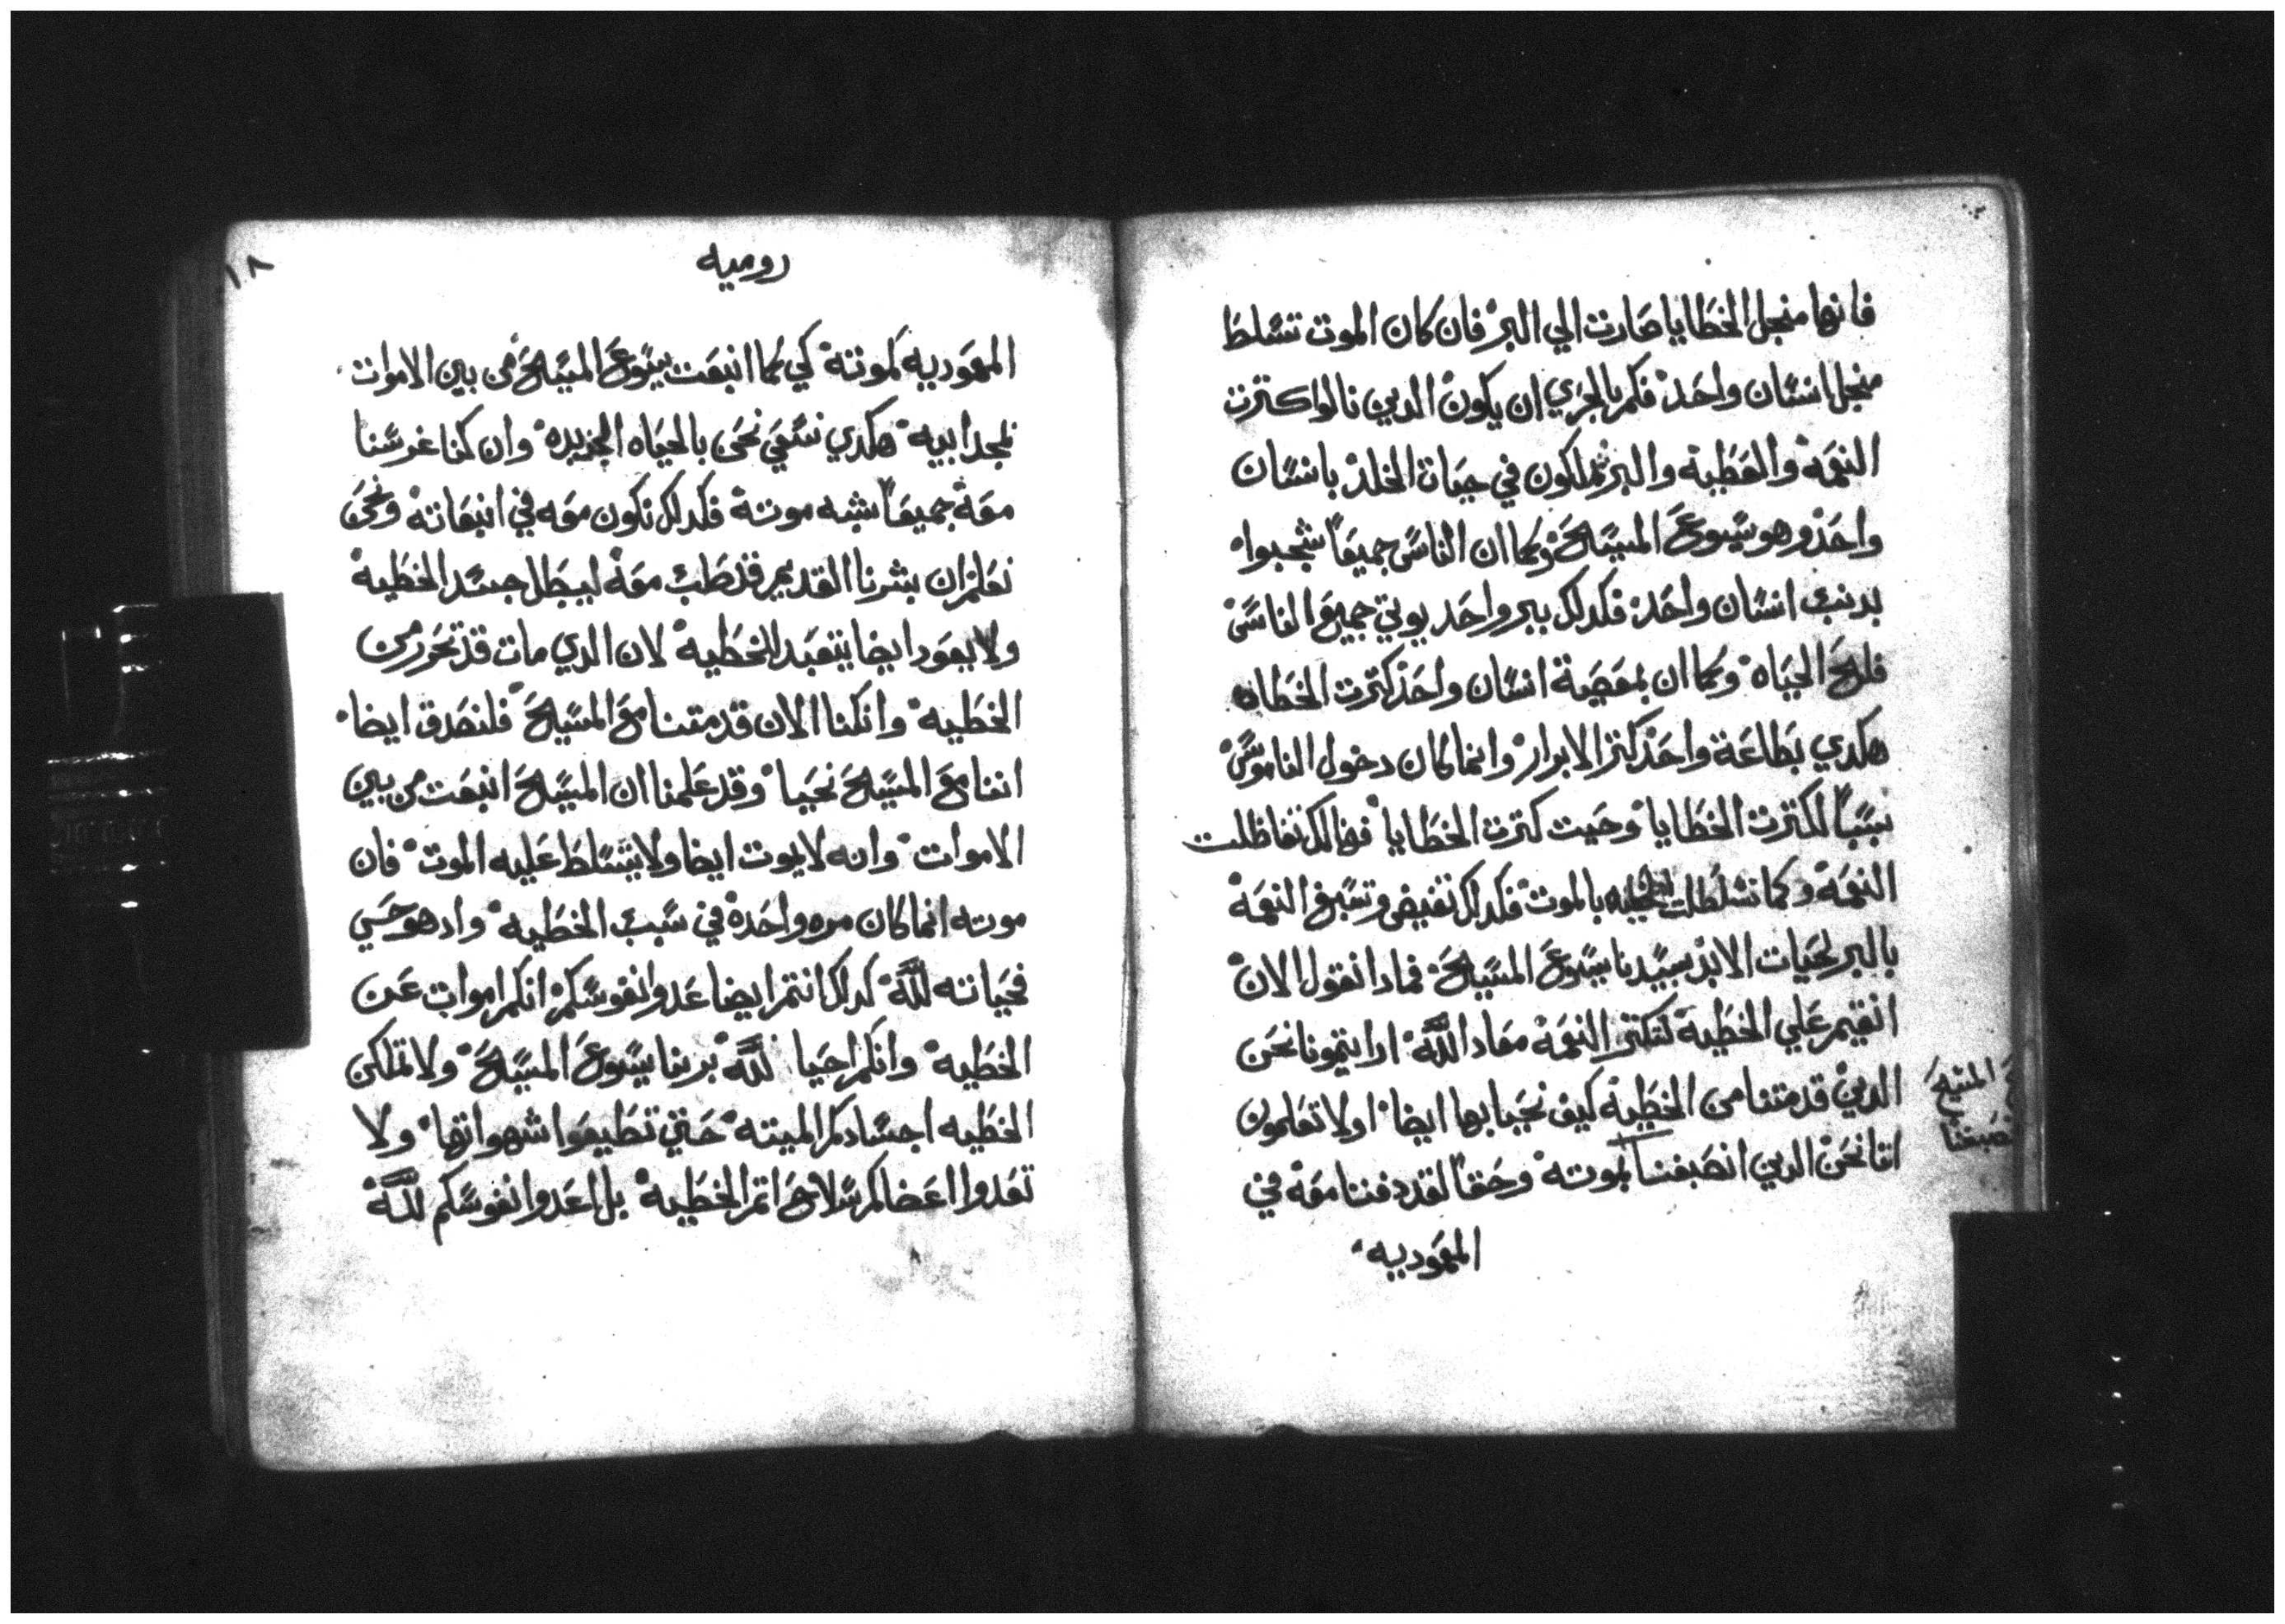 فانها منجل الخطايا صارت الي البر فان كان الموت تسلط
منجل انسان واحد فكم بالحري ان يكون الدين نالوا كترت
النعمة والعطية والبر يملكون في حيات الخلد بانسان
واحد وهو يسوع المسيح وكما ان الناس جميعا شجبوا
بدنب انسان واحد فكدلك ببر واحد يوتي جميع الناس
فلح الحياه وكما ان بمعصية انسان واحد كترت الخطاه
هكدي بطاعة واحد كتر الابرار وانما كان دخول الناموس
سببا لكترت الخطايا وحيت كترت الخطايا فهنالك تفاظلت
النعمة وكما تسلطت الخطيه بالموت فكدلك تفيض وتسبغ النعمة
بالبر لحيات الابد بسيدنا يسوع المسيح فمادا نقول الان
انقيم علي الخطية لتكتر النعمة معاد الله ارايتمونا نحن
الدين قد متنا من الخطية كيف نحيا بها ايضا اولا تعلمون
اننا نحن الدين انصبغنا بموته وحقا لقد دفننا معه في
المعموديه
المسيح
روميه
١٨
المعموديه كموته كي كما انبعت يسوع المسيح من بين الاموات
بمجد ابيه هكدي نسعي نحن بالحياه الجديده وان كنا غرسنا
معه جميعا بشبه موته فكدلك نكون معه في انبعاته ونحن
نعلم ان بشرنا القديم قد صلب معه ليبطل جسد الخطية
ولا يعود ايضا يتعبد للخطيه لان الدي مات قد تحرر من
الخطيه وان كنا الان قد متنا مع المسيح فلنصدق ايضا
اننا مع المسيح نحيا وقد علمنا ان المسيح انبعت من بين
الاموات وانه لا يموت ايضا ولا يتسلط عليه الموت فان
موته انما كان مره واحدة في سبب الخطيه واد هو حي
فحياته لله كدلك انتم ايضا عدوا نفوسكم انكم اموات عن
الخطيه وانكم احيا لله بربنا يسوع المسيح ولا تملكن
الخطيه اجسادكم الميته حتي تطيعوا شهواتها ولا
تعدوا اعضاكم سلاح اتم الخطيه بل اعدوا نفوسكم لله